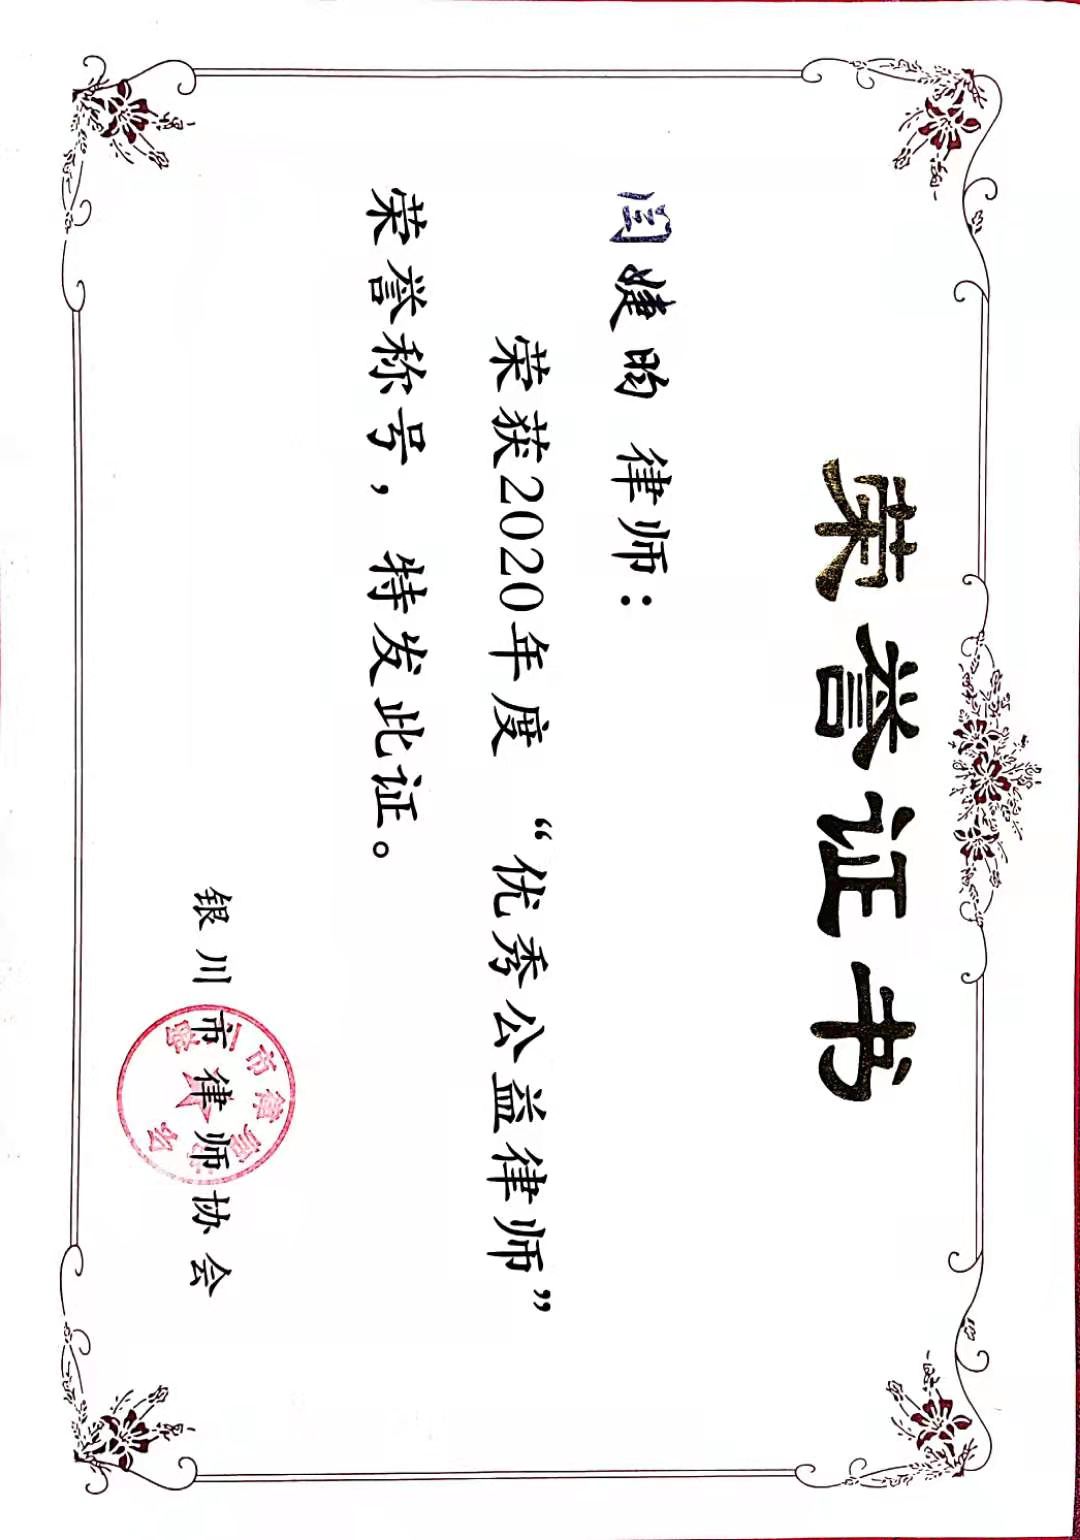 荣誉证书
闫婕昀 律师：
荣获2020年度 “优秀公益律师”
荣誉称号，特发此证。
银川市律师协会